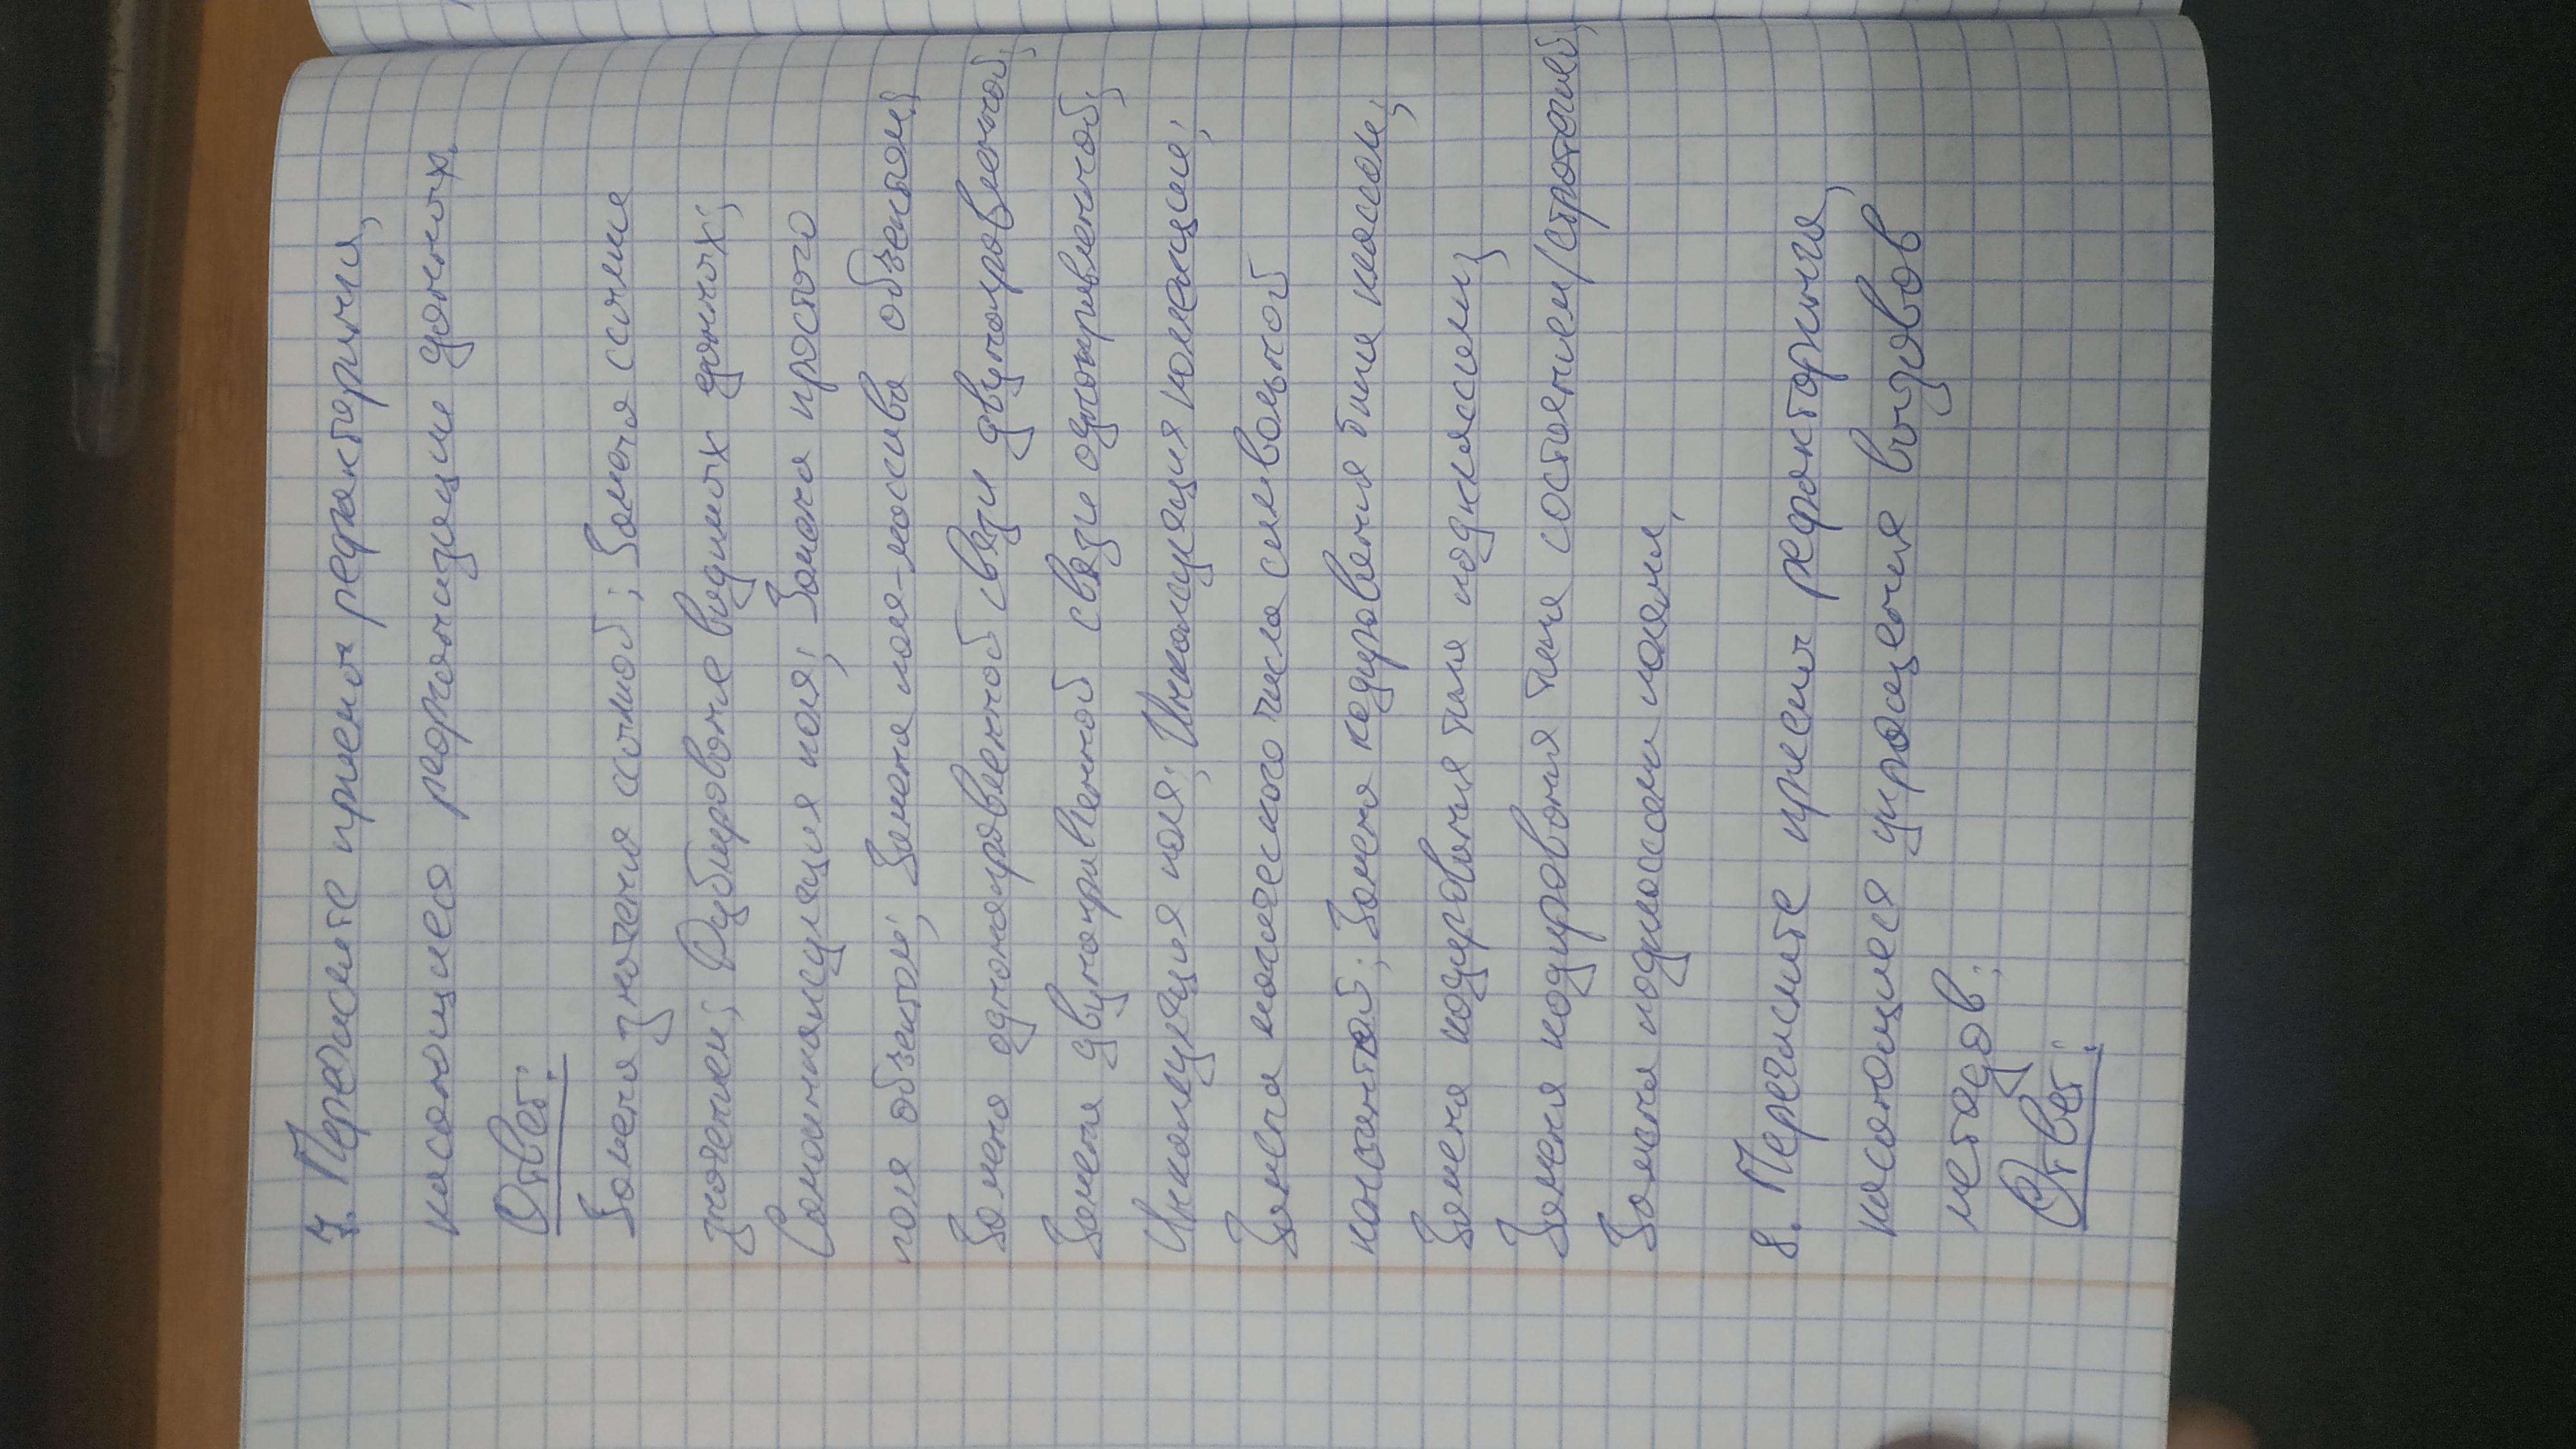 7. Перечислите приемы рефакторинга,
касающиеся реорганизации данных.
Ответ:
Замена значения ссылкой; Замена ссылки
значением; Дублирование видимых данных;
Самоинкапсуляция поля; Замена простого
поля объектом; Замена поля-массива объектом;
Замена однонаправленной связи двунаправленной;
Замена двунаправленной связи однонаправленной;
Инкапсуляция поля; Инкапсуляция коллекции;
Замена магического числа символьной
константой; Замена кодирования типа классом;
Замена кодирования типа подклассами;
Замена кодирования типа состоянием/стратегией;
Замена подкласса полями,
8. Перечислите приемы рефакторинга,
касающиеся упрощения вызовов
методов:
Ответ: